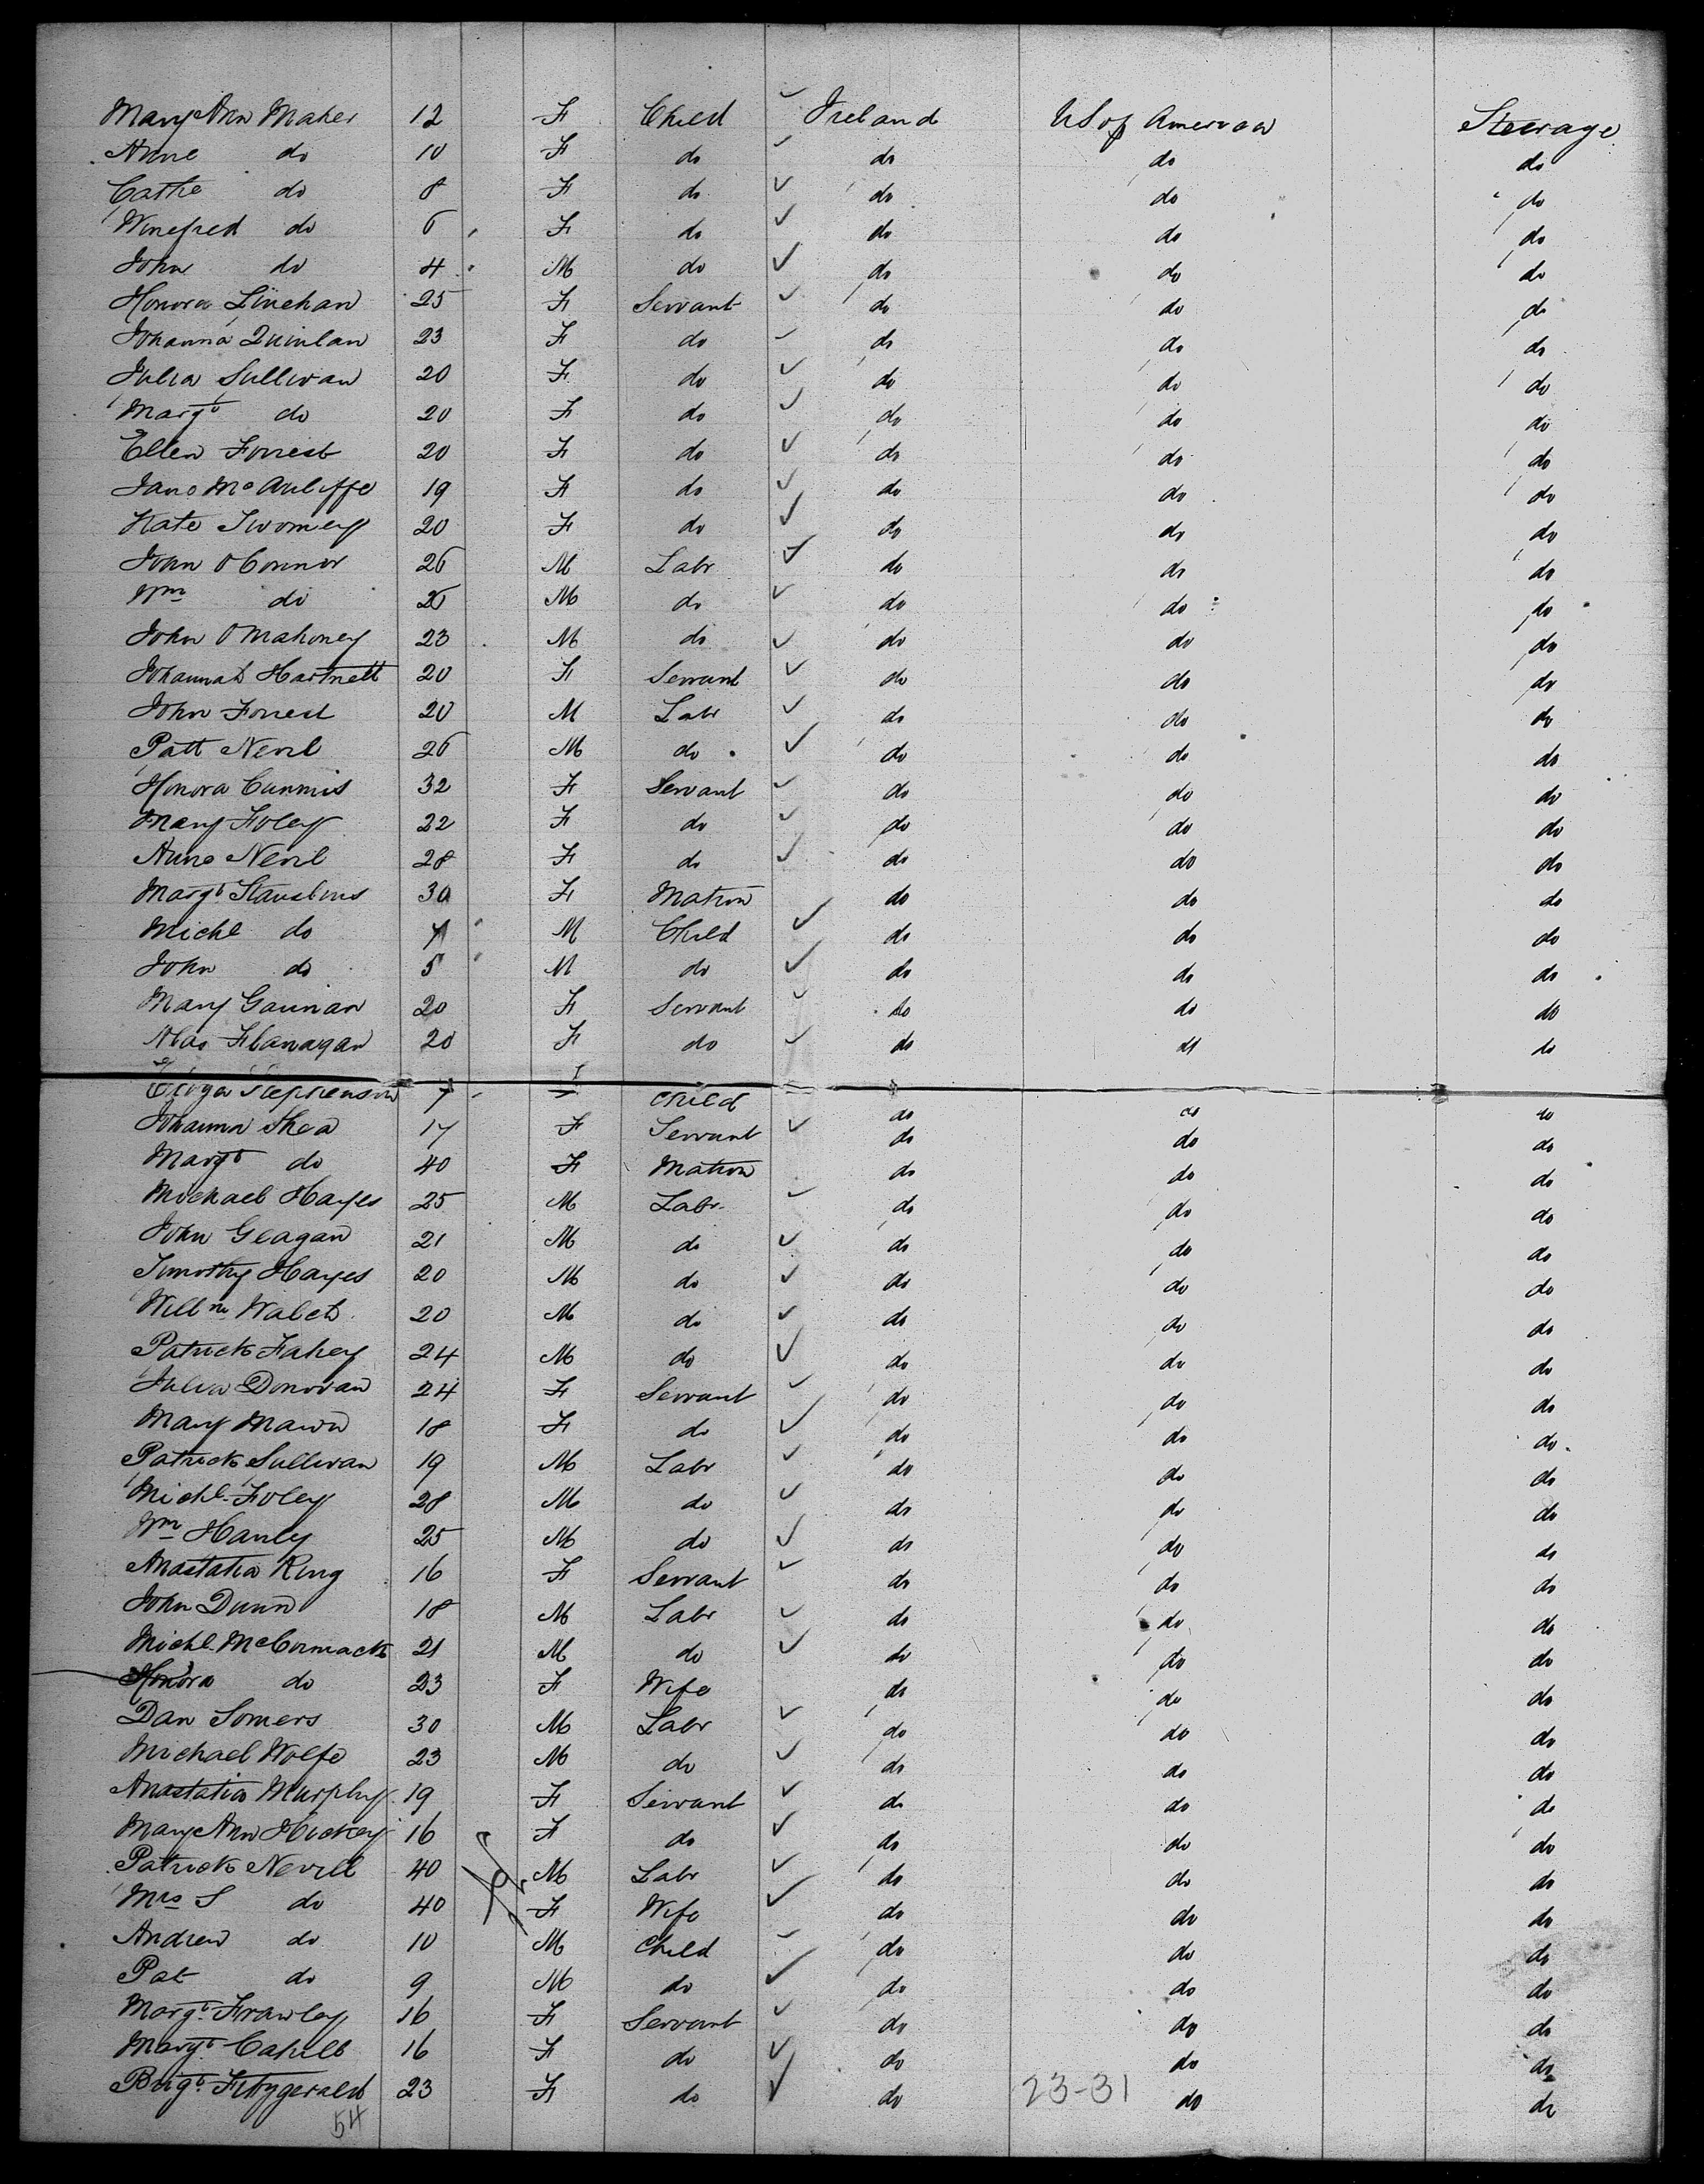 Mary Ann Maher 12 F Child Ireland US of America Steerage
Anne do 10 F do do do do
Cathe do 8 F do do do do
Winefred do 6 F do do do do
John do 4 M do do do do
Honora Linehan 25 F Servant do do do
Johanna Quinlan 23 F do do do do
Julia Sullivan 20 F do do do do
Margt do 20 F do do do do
Ellen Forrest 20 F do do do do
Jane McAuliffe 19 F do do do do
Kate Twomey 20 F do do do do
John O Connor 26 M Labr do do do
Wm do 25 M do do do do
John O Mahoney 23 M do do do do
Johannah Hartnett 20 F Servant do do do
John Forrest 20 M Labr do do do
Patt Nevil 26 M do do do do
Honora Cummis 32 F Servant do do do
Mary Foley 22 F do do do do
Anne Nevil 28 F do do do do
Margt 30 F Matron do do do
Michl do 7 M Child do do do
John do 5 M do do do do
Mary 20 F Servant do do do
Flanagan 20 F do do do do
Stephenson 7 F Child do do do
Johanna Shea 17 F Servant do do do
Margt do 40 F Matron do do do
Michael Hayes 25 M Labr do do do
John Geagan 21 M do do do do
Timothy Hayes 20 M do do do do
Willm Walsh 20 M do do do do
Patrick Fahey 24 M do do do do
Julia Donovan 24 F Servant do do do
Mary Mawn 18 F do do do do
Patrick Sullivan 19 M Labr do do do
Michl Foley 28 M do do do do
Wm Hanly 25 M do do do do
Anastatia King 16 F Servant do do do
John Dunn 18 M Labr do do do
Michl McCormack 21 M do do do do
Honora do 23 F Wife do do do
Dan Somers 30 M Labr do do do
Michael Wolfe 23 M do do do do
Anastatia Murphy 19 F Servant do do do
Mary Ann Hickey 16 F do do do do
Patrick Nevill 40 M Labr do do do
Mrs S do 40 F Wife do do do
Andrew do 10 M Child do do do
Pat do 9 M do do do do
Margt Frawley 16 F Servant do do do
Margt Cahill 16 F do do do do
Brigt Fitzgerald 23 F do do 23-31 do do
54